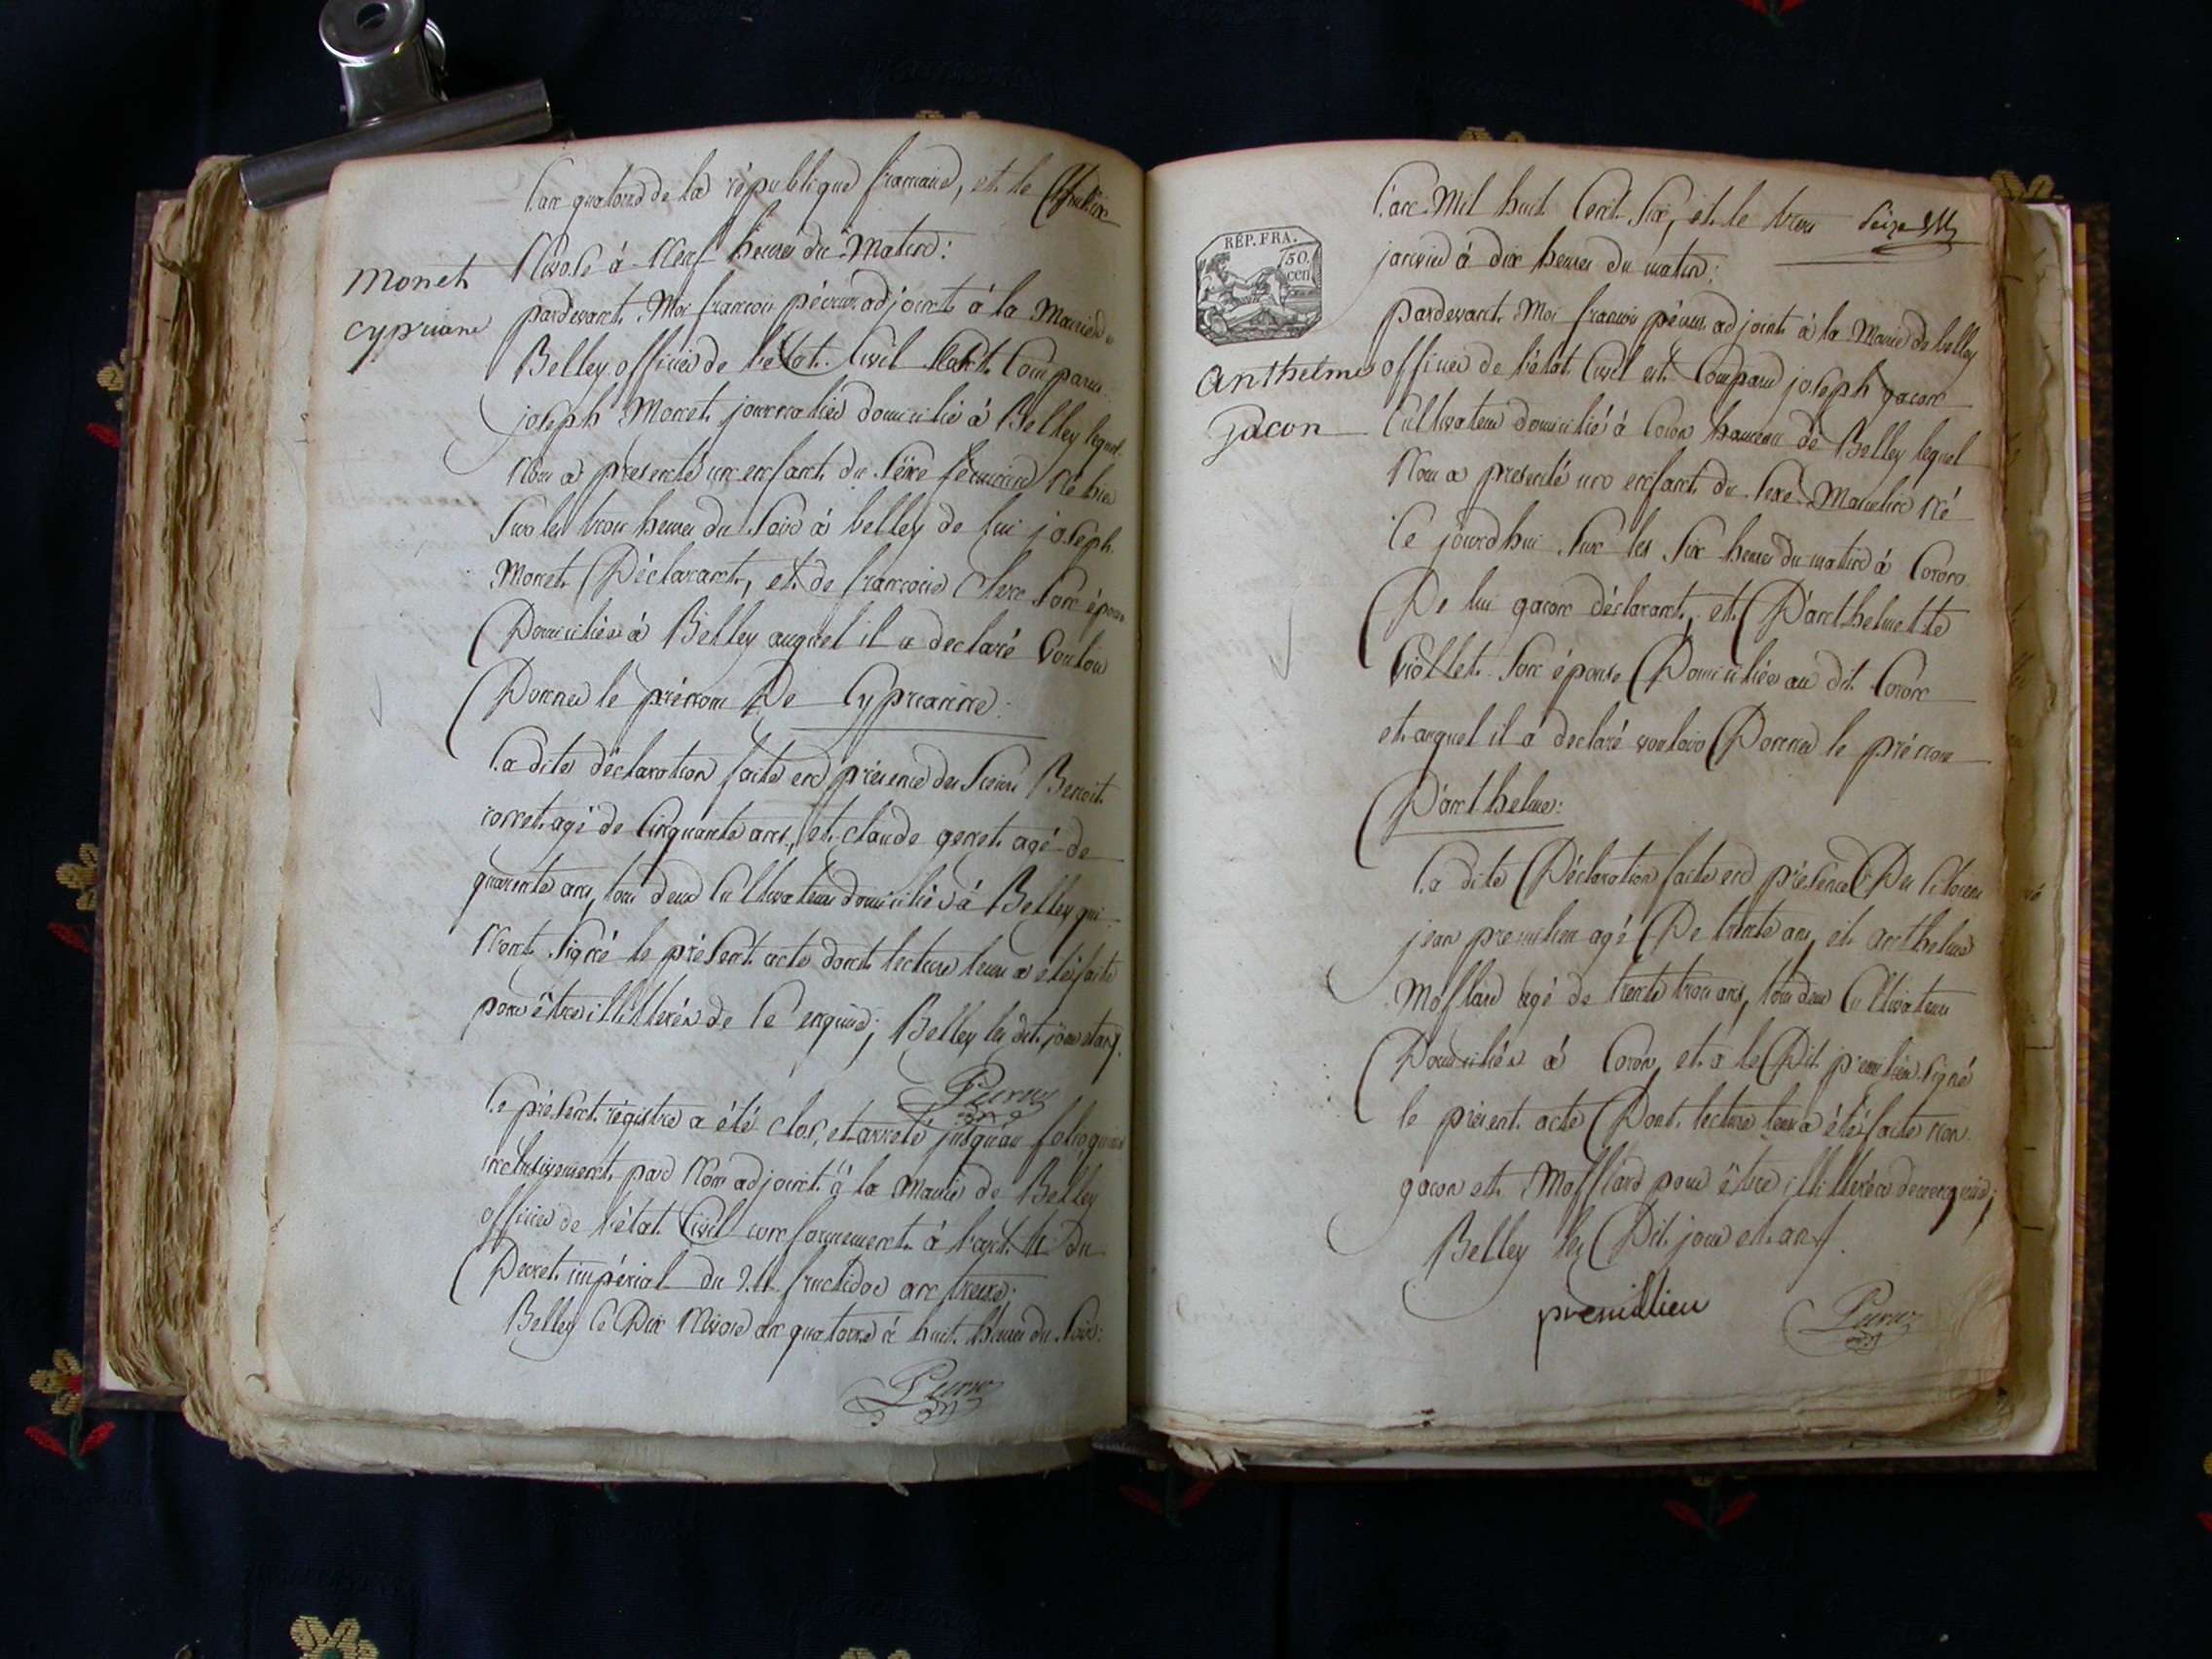 L'an quatorze de la république française, et le
Nivose à Neuf heures du Matin:
Monet
Cypriane
pardevant Moi françois péeur adjoint à la Mairie de
Belley officier de l'état Civil est Comparu
joseph Monet journalier domicilié à Belley lequel
Nous a presenté un enfant du séxe féminin Né hier
sur les trois heures du soir à belley de lui joseph
Monet Déclarant, et de françoise Clerc son épouse
Domiciliés à Belley auquel il a declaré Vouloir
Donner le prénom De Cyprianne:
La dite déclaration faite en présence des sieurs Benoit
agé de Cinquante ans, et claude genet agé de
quarante ans, tous deux Cultivateurs domiciliés à Belley qui
N'ont signé le présent acte dont lecture leur a été faite
pour être illitterés de ce enquis; Belley les dit jour et an
Le présent régistre a été clos, et arreté jusqu'au folio quinze
inclusivement, par Nous adjoint à la Mairie de Belley
officier de l'état Civil conformement à l'art. du
Decret impérial du fructidor an treize:
Belley le Dix Nivose an quatorze à huit heures du Soir:
seize
L'an Mil huit Cent Six, et le trois
janvier à dix heures du matin:
RÉP. FRA.
50
cen
pardevant Moi françois péeur adjoint à la Mairie de belley
Anthelme
gacon
officier de l'état Civil est Comparu joseph gacon
Cultivateur domicilié à Coron hameau de Belley lequel
Nous a presenté un enfant du Sexe Masculin Né
Ce jourd'hui sur les Six heures du matin à Coron
De lui gacon déclarant, et D'anthelmette
Viollet son épouse Domiciliés au dit Coron
et auquel il a declaré vouloir Donner le prénom
D'anthelme:
La dite Déclaration faite en présence Des Citoyens
jean premilieu agé De trente ans, et anthelme
Mofflard agé de trente trois ans, tous deux Cultivateurs
Domiciliés à Coron, et a le Dit premilieu signé
le présent acte Dont lecture leur a été faite non
gacon et Mofflard pour être illitterés de ce enquis;
Belley les Dit jour et an
premillieu